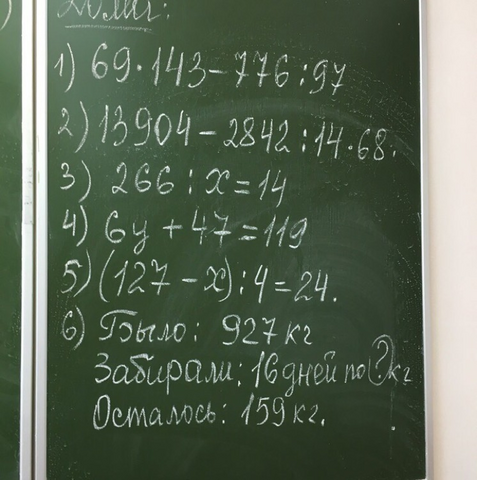 Дома:
1) 69·143-776:97
2) 13904-2842:14·68.
3) 266:x=14
4) 6y+47=119
5) (127-x):4=24.
6) Было: 927кг
Забирали: 16дней по ? кг
Осталось: 159кг.